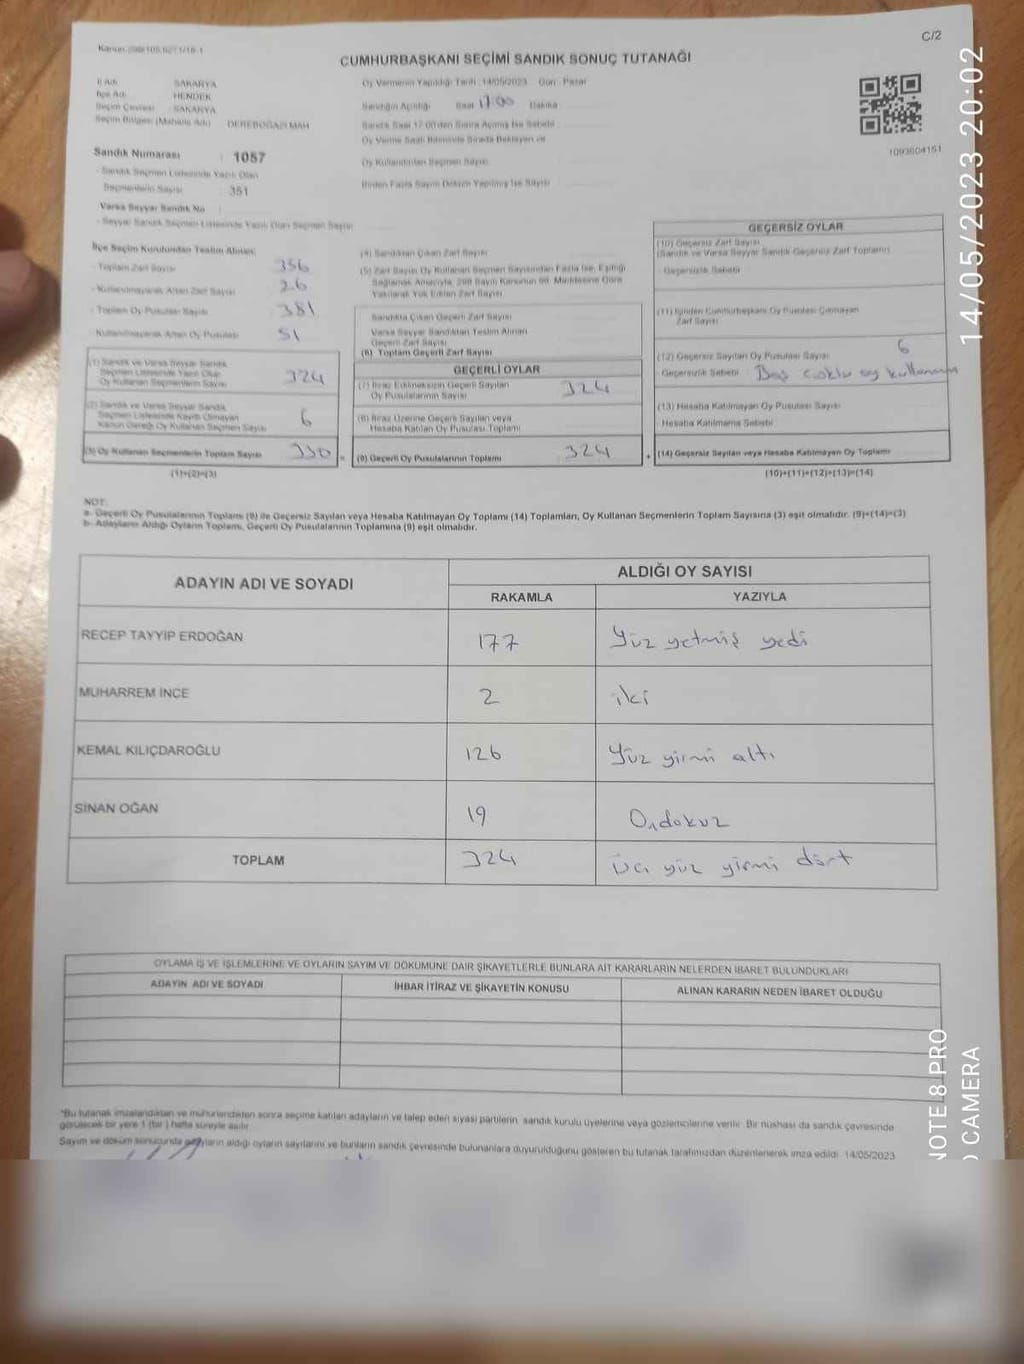 C/2
Kanun:298/105,6271/18-1
CUMHURBAŞKANI SEÇİMİ SANDIK SONUÇ TUTANAĞI
İl Adı SAKARYA
İlçe Adı HENDEK
Seçim Çevresi SAKARYA
Seçim Bölgesi (Mahalle Adı) DEREBOĞAZI MAH
Sandık Numarası : 1057
- Sandık Seçmen Listesinde Yazılı Olan
Seçmenlerin Sayısı : 351
Varsa Seyyar Sandık No :
- Seyyar Sandık Seçmen Listesinde Yazılı Olan Seçmen Sayısı
Oy Vermenin Yapıldığı Tarih :14/05/2023 Gün : Pazar
Sandığın Açıldığı Saat 17:00 Dakika
Sandık Saat 17:00'den Sonra Açılmış İse Sebebi
Oy Verme Saati Bitiminde Sırada Bekleyen ve
Oy Kullandırılan Seçmen Sayısı
Birden Fazla Sayım Döküm Yapılmış İse Sayısı
1093604151
İlçe Seçim Kurulundan Teslim Alınan;
- Toplam Zarf Sayısı 356
- Kullanılmayarak Artan Zarf Sayısı 26
- Toplam Oy Pusulası Sayısı 381
- Kullanılmayarak Artan Oy Pusulası 51
(1) Sandık ve Varsa Seyyar Sandık
Seçmen Listesinde Yazılı Olup
Oy Kullanan Seçmenlerin Sayısı 324
(2) Sandık ve Varsa Seyyar Sandık
Seçmen Listesinde Kayıtlı Olmayan
Kanun Gereği Oy Kullanan Seçmen Sayısı 6
(3) Oy Kullanan Seçmenlerin Toplam Sayısı 330
(1)+(2)=(3)
(4) Sandıktan Çıkan Zarf Sayısı
(5) Zarf Sayısı Oy Kullanan Seçmen Sayısından Fazla İse, Eşitliği
Sağlamak Amacıyla, 298 Sayılı Kanunun 98. Maddesine Göre
Yakılarak Yok Edilen Zarf Sayısı
Sandıkta Çıkan Geçerli Zarf Sayısı
Varsa Seyyar Sandıktan Teslim Alınan
Geçerli Zarf Sayısı
(6) Toplam Geçerli Zarf Sayısı
GEÇERLİ OYLAR
(7) İtiraz Edilmeksizin Geçerli Sayılan
Oy Pusulalarının Sayısı 324
(8) İtiraz Üzerine Geçerli Sayılan veya
Hesaba Katılan Oy Pusulası Toplamı
= (9) Geçerli Oy Pusulalarının Toplamı 324
GEÇERSİZ OYLAR
(10) Geçersiz Zarf Sayısı
(Sandık ve Varsa Seyyar Sandık Geçersiz Zarf Toplamı)
- Geçersizlik Sebebi
(11) İçinden Cumhurbaşkanı Oy Pusulası Çıkmayan
Zarf Sayısı
(12) Geçersiz Sayılan Oy Pusulası Sayısı 6
- Geçersizlik Sebebi oy
(13) Hesaba Katılmayan Oy Pusulası Sayısı
- Hesaba Katılmama Sebebi
+ (14) Geçersiz Sayılan veya Hesaba Katılmayan Oy Toplamı
(10)+(11)+(12)+(13)=(14)
NOT:
a- Geçerli Oy Pusulalarının Toplamı (9) ile Geçersiz Sayılan veya Hesaba Katılmayan Oy Toplamı (14) Toplamları, Oy Kullanan Seçmenlerin Toplam Sayısına (3) eşit olmalıdır. (9)+(14)=(3)
b- Adayların Aldığı Oyların Toplamı, Geçerli Oy Pusulalarının Toplamına (9) eşit olmalıdır.
ADAYIN ADI VE SOYADI
ALDIĞI OY SAYISI
RAKAMLA YAZIYLA
RECEP TAYYİP ERDOĞAN 177 Yüz yetmiş yedi
MUHARREM İNCE 2 iki
KEMAL KILIÇDAROĞLU 126 Yüz yirmi altı
SİNAN OĞAN 19 Ondokuz
TOPLAM 324 Üç yüz yirmi dört
OYLAMA İŞ VE İŞLEMLERİNE VE OYLARIN SAYIM VE DÖKÜMÜNE DAİR ŞİKAYETLERLE BUNLARA AİT KARARLARIN NELERDEN İBARET BULUNDUKLARI
ADAYIN ADI VE SOYADI İHBAR İTİRAZ VE ŞİKAYETİN KONUSU ALINAN KARARIN NEDEN İBARET OLDUĞU
*Bu tutanak imzalandıktan ve mühürlendikten sonra seçime katılan adayların ve talep eden siyasi partilerin sandık kurulu üyelerine veya gözlemcilerine verilir. Bir nüshası da sandık çevresinde
görülecek bir yere 1 (bir) hafta süreyle asılır.
Sayım ve döküm sonucunda adayların aldığı oyların sayılarını ve bunların sandık çevresinde bulunanlara duyurulduğunu gösteren bu tutanak tarafımızdan düzenlenerek imza edildi. 14/05/2023
14/05/2023 20:02
NOTE 8 PRO
CAMERA